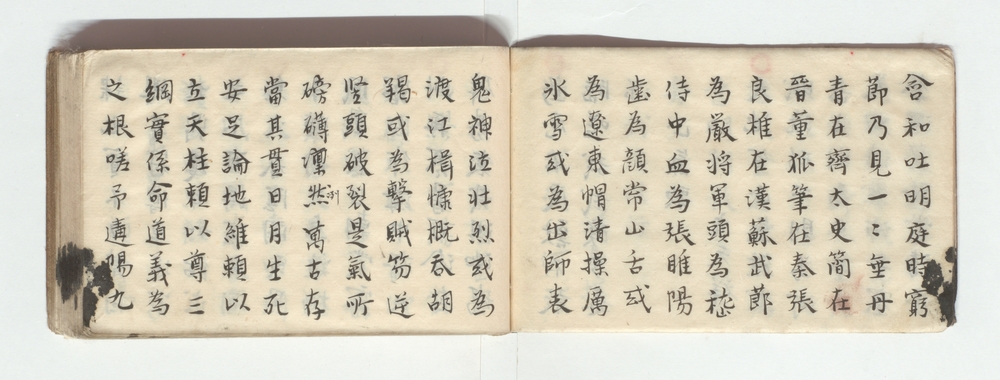 含和吐明庭時窮
節乃見一〻垂丹
青在齊太史簡在
晉董狐筆在秦張
良椎在漢蘇武節
為嚴將軍頭為嵇
侍中血為張睢陽
齒為顏常山舌或
為遼東帽清操厲
氷雪或為出師表
鬼神泣壯烈或為
渡江楫慷慨吞胡
羯或為擊賊笏逆
竪頭破裂是氣所
磅礴凜然冽萬古存
當其貫日月生死
安足論地維賴以
立天柱賴以尊三
綱實係命道義為
之根嗟予遘陽九